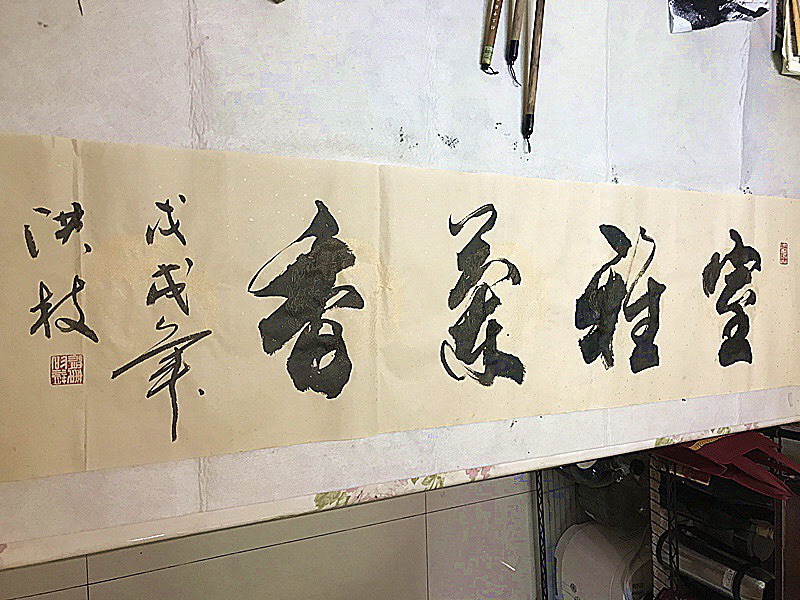 室雅蘭香
戊戌年
洪枝